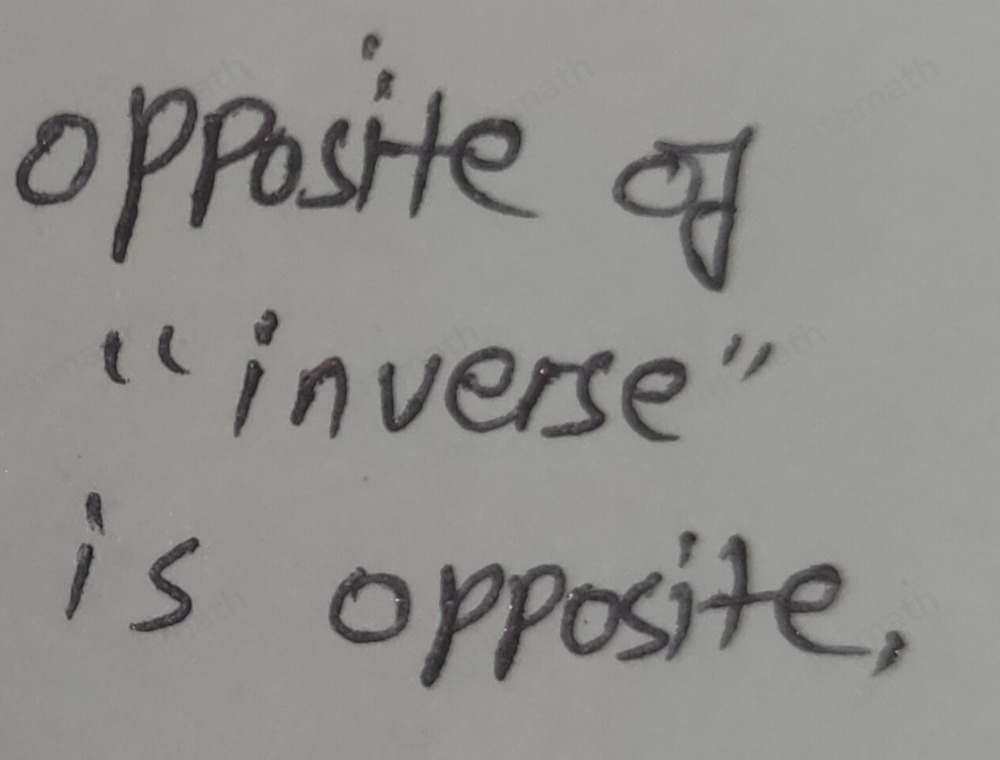 opposite of
"inverse"
is opposite.